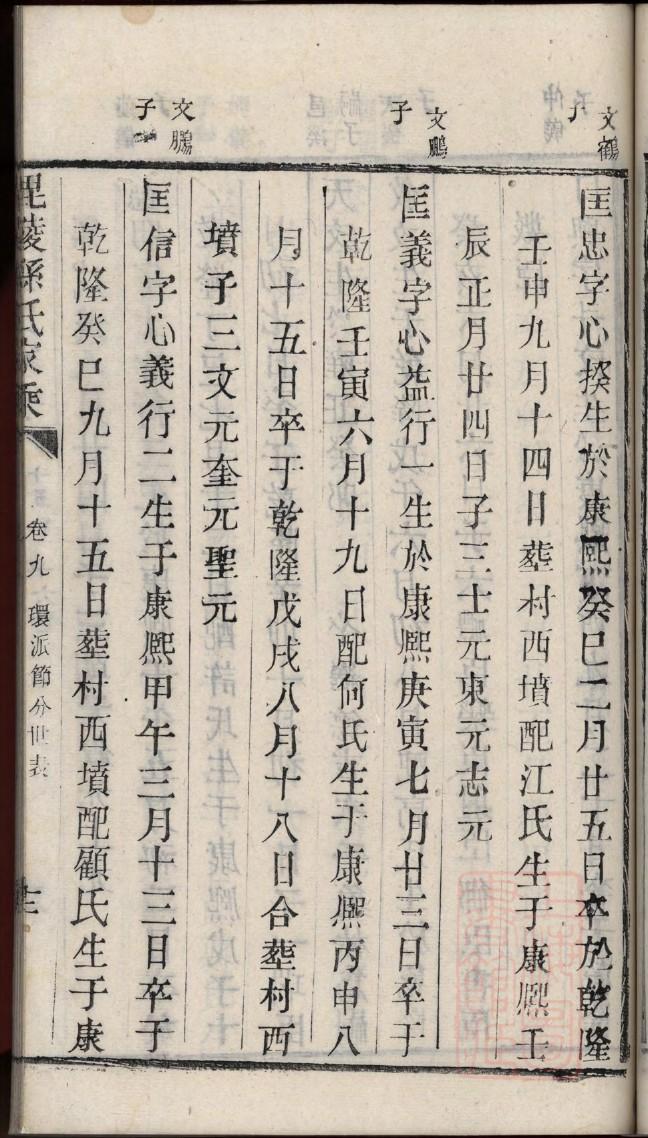 文鶴
子
匡忠字心揆生於康熙癸巳二月廿五日卒於乾隆
壬申九月十四日塟村西墳配江氏生于康熙壬
辰正月廿四日子三士元東元志元
文鵬
子
匡義字心益行一生於康熙庚寅七月廿三日卒于
乾隆壬寅六月十九日配何氏生于康熙丙申八
月十五日卒于乾隆戊戌八月十八日合塟村西
墳子三文元奎元聖元
文鵬
子二
匡信字心義行二生于康熙甲午三月十三日卒于
乾隆癸巳九月十五日塟村西墳配顧氏生于康
毘陵孫氏家乘
卷九
環派節分世表